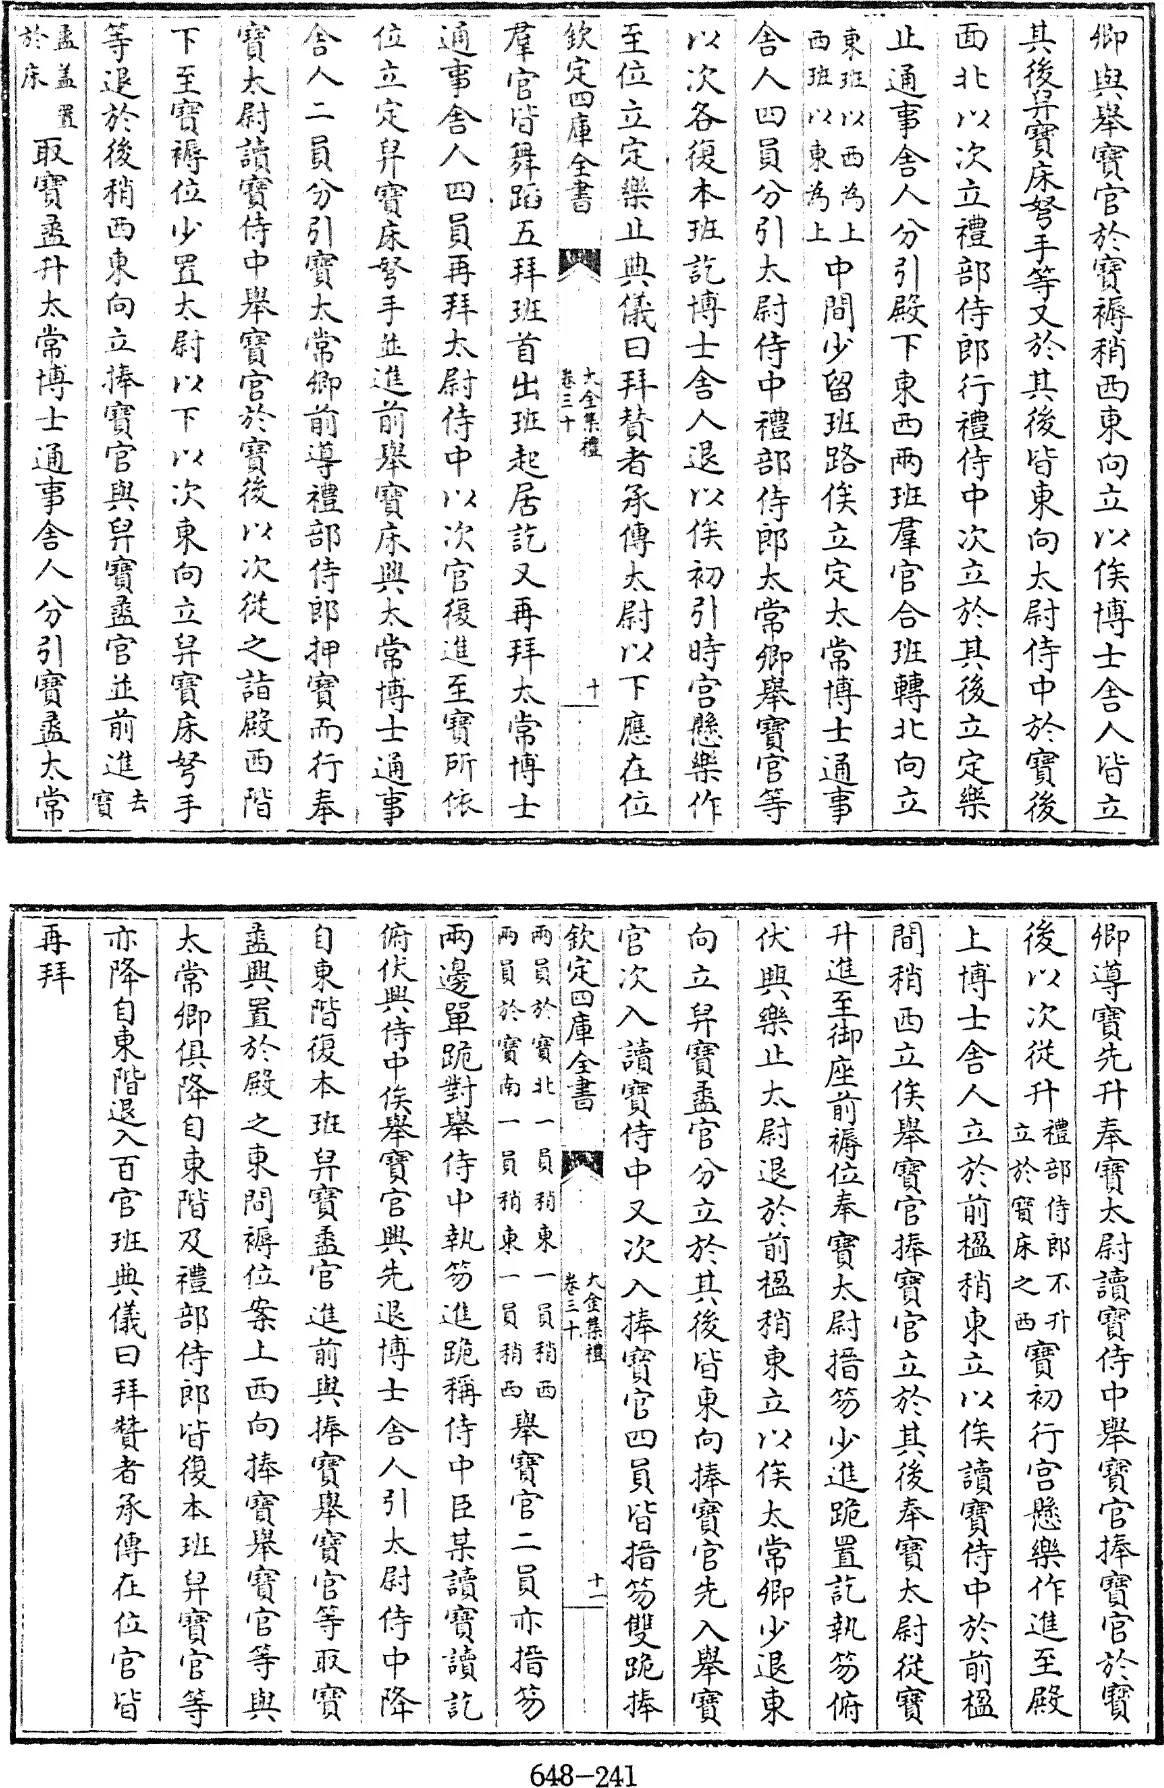 卿與舉寶官於寶褥稍西東向立以俟博士舍人皆立
其後舁寶床弩手等又於其後皆東向太尉侍中於寶後
面北以次立禮部侍郎行禮侍中次立於其後立定樂
止通事舍人分引殿下東西兩班羣官合班轉北向立
東班以西為上
西班以東為上中間少留班路俟立定太常博士通事
舍人四員分引太尉侍中禮部侍郎太常卿舉寶官等
以次各復本班訖博士舍人退以俟初引時宫懸樂作
至位立定樂止典儀曰拜贊者承傳太尉以下應在位
欽定四庫全書
大金集禮
卷三十
十
羣官皆舞蹈五拜班首出班起居訖又再拜太常博士
通事舍人四員再拜太尉侍中以次官復進至寶所依
位立定舁寶床弩手並進前舉寶床興太常博士通事
舍人二員分引寶太常卿前導禮部侍郎押寶而行奉
寶太尉讀寶侍中舉寶官於寶後以次從之詣殿西階
下至寶褥位少置太尉以下以次東向立舁寶床弩手
等退於後稍西東向立捧寶官與舁寶盝官並前進去
寶
盝盖置
於床取寶盝升太常博士通事舍人分引寶盝太常
卿導寶先升奉寶太尉讀寶侍中舉寶官捧寶官於寶
後以次從升禮部侍郎不升
立於寶床之西寶初行宫懸樂作進至殿
上博士舍人立於前楹稍東立以俟讀寶侍中於前楹
間稍西立俟舉寶官捧寶官立於其後奉寶太尉從寶
升進至御座前褥位奉寶太尉搢笏少進跪置訖執笏俯
伏興樂止太尉退於前楹稍東立以俟太常卿少退東
向立舁寶盝官分立於其後皆東向捧寶官先入舉寶
官次入讀寶侍中又次入捧寶官四員皆搢笏雙跪捧
欽定四庫全書
大金集禮
卷三十
十一
兩員於寶北一員稍東一員稍西
兩員於寶南一員稍東一員稍西舉寶官二員亦搢笏
兩邊單跪對舉侍中執笏進跪稱侍中臣某讀寶讀訖
俯伏興侍中俟舉寶官興先退博士舍人引太尉侍中降
自東階復本班舁寶盝官進前與捧寶舉寶官等取寶
盝興置於殿之東間褥位案上西向捧寶舉寶官等與
太常卿俱降自東階及禮部侍郎皆復本班舁寶官等
亦降自東階退入百官班典儀曰拜贊者承傳在位官皆
再拜
648-241